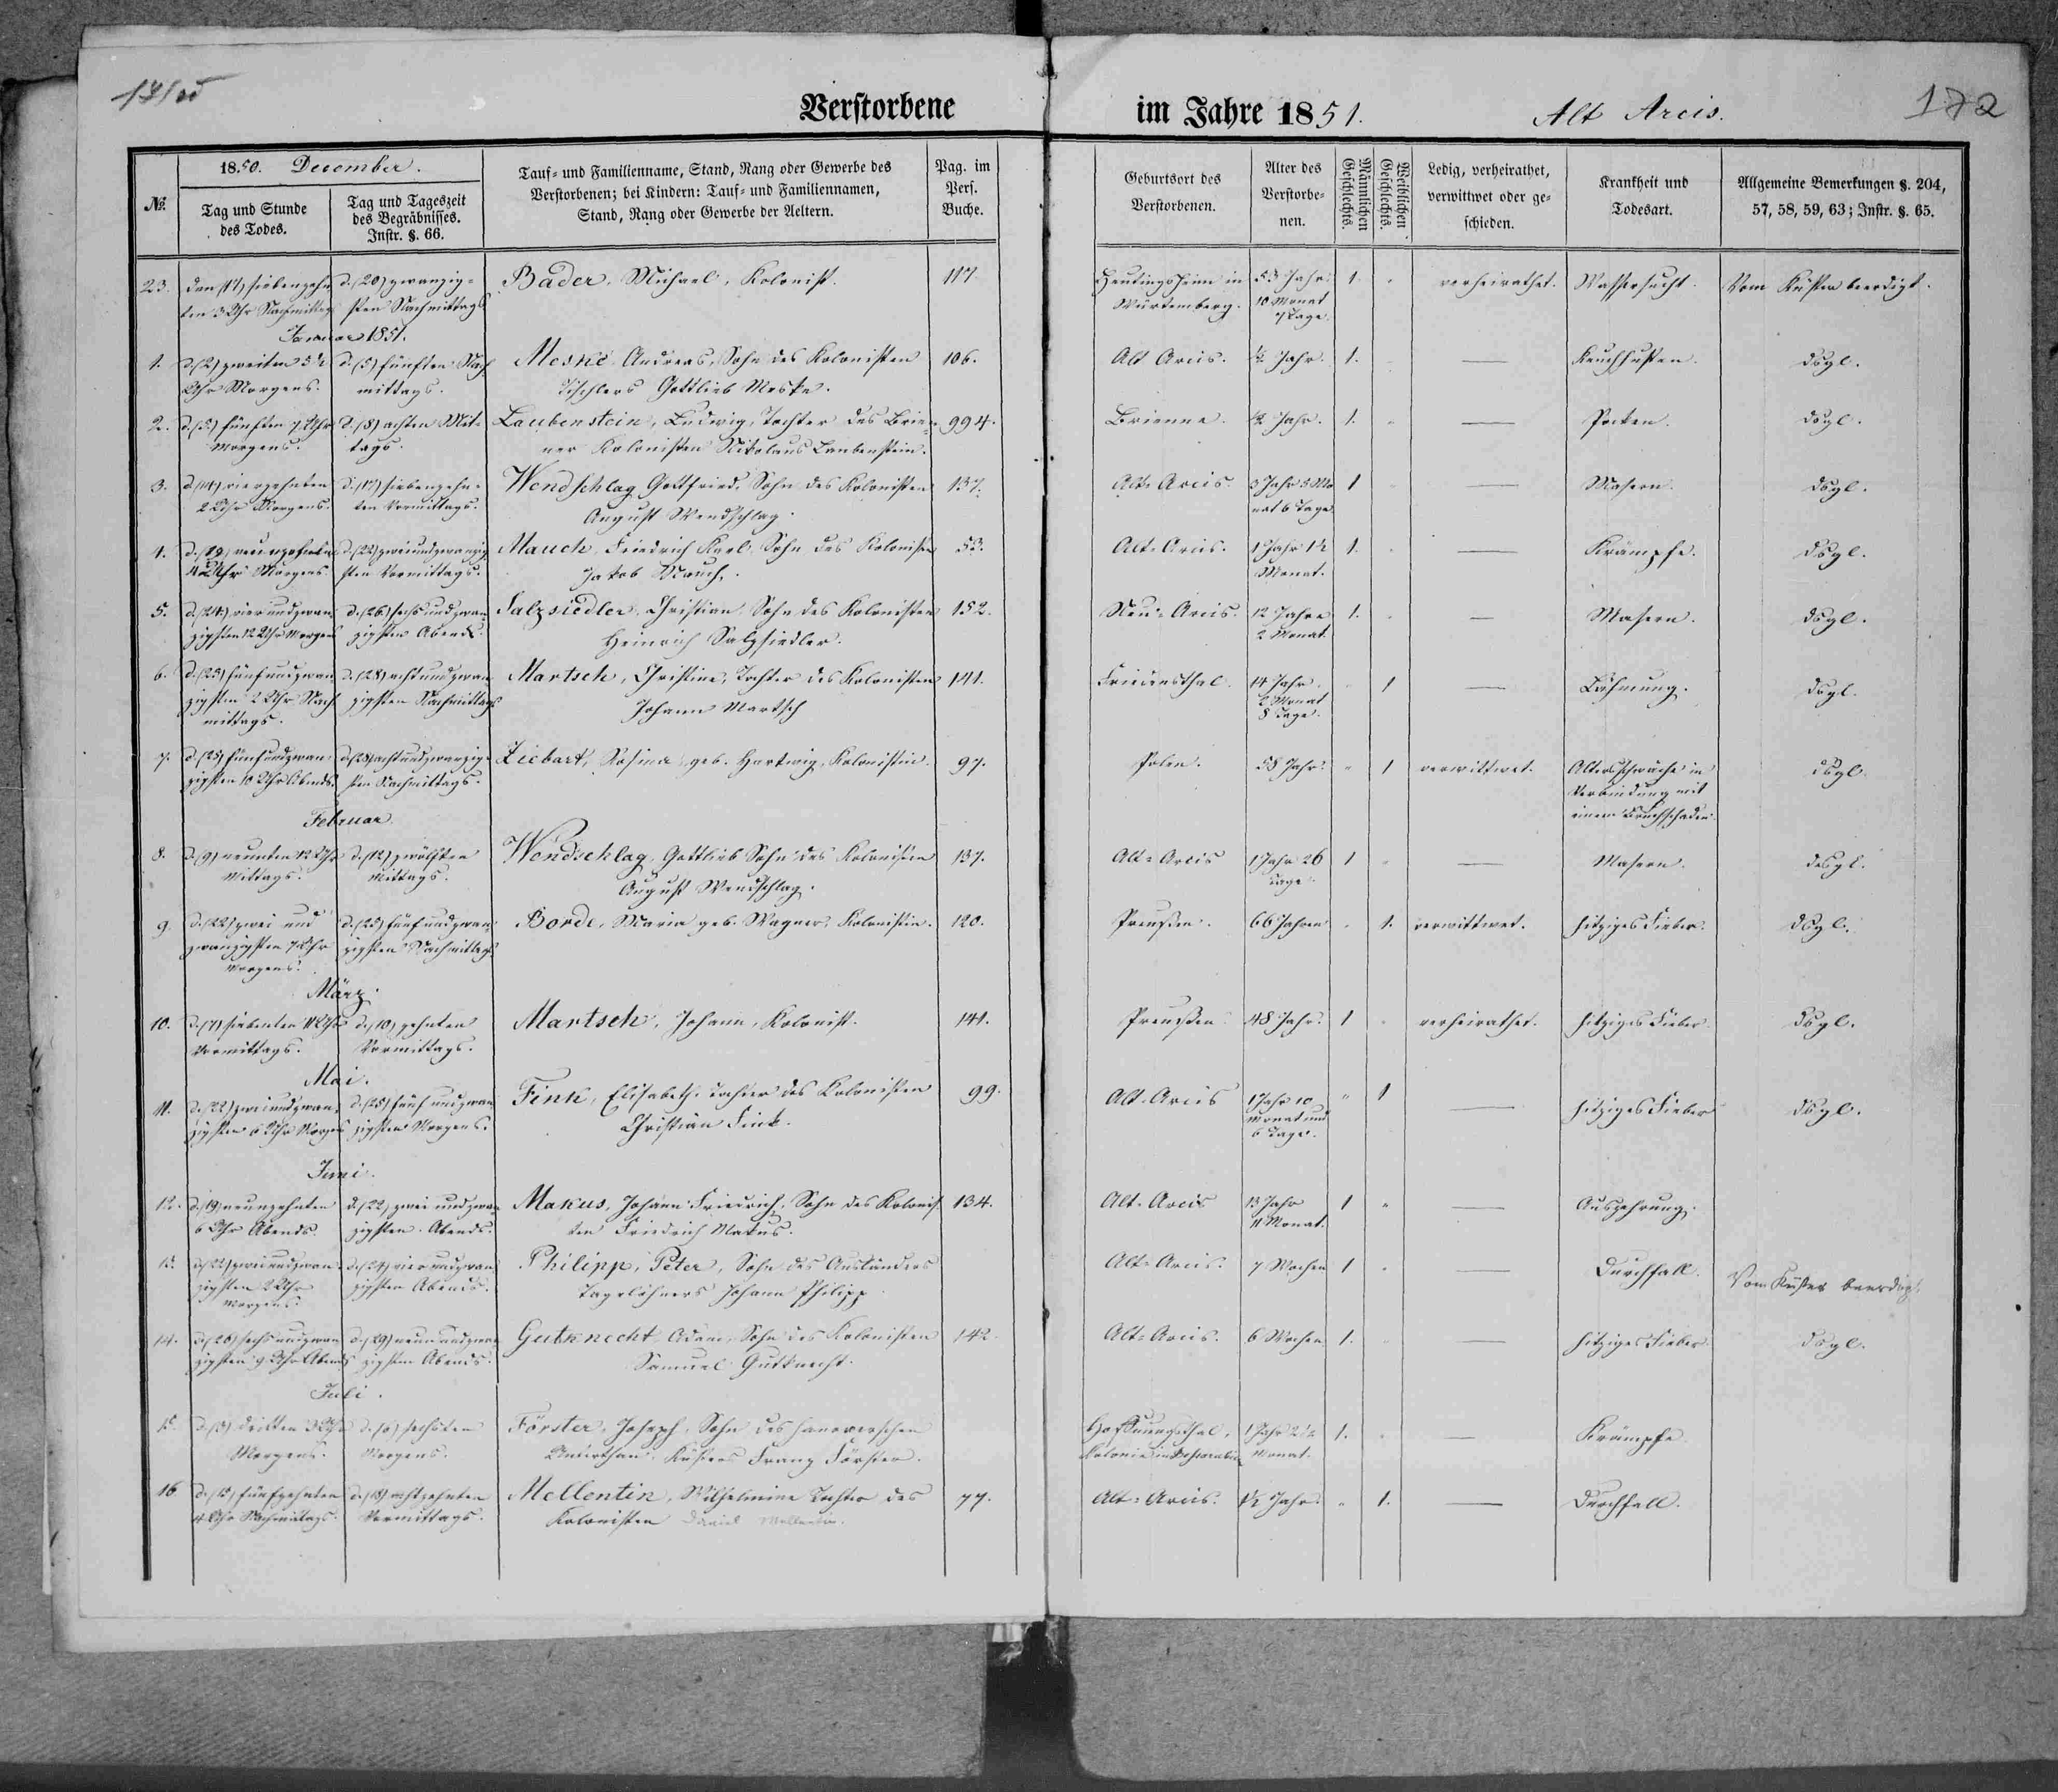 Verstorbene im Jahre 1851. Alt Arcis. 172
1850. December.
No.
Tag und Stunde
des Todes.
Tag und Tageszeit
des Begräbnisses.
Instr. §. 66.
Tauf- und Familienname, Stand, Rang oder Gewerbe des
Verstorbenen; bei Kindern: Tauf- und Familiennamen,
Stand, Rang oder Gewerbe der Aeltern.
Pag. im
Pers.
Buche.
Geburtsort des
Verstorbenen.
Alter des
Verstorbe-
nen.
Männlichen
Geschlechts.
Weiblichen
Geschlechts.
Ledig, verheirathet,
verwittwet oder ge-
schieden.
Krankheit und
Todesart.
Allgemeine Bemerkungen §. 204,
57, 58, 59, 63; Instr. §. 65.
23. den (17) siebenzehn d. (20) zwanzig- Bader, Michael, Kolonist. 117. Heutingsheim in 53 Jahr 1. verheirathet. Wassersucht. Vom Küster beerdigt.
ten 3 Uhr Nachmittag sten Nachmittags Würtemberg. 10 Monat
7 Tage.
Januar 1851.
1. d. (2) zweiten 5½ d. (5) fünften Nach Meske Andreas, Sohn des Kolonisten 106. Alt Arcis. ½ Jahr. 1. — Keuchhusten. dsgl.
Uhr Morgens. mittags. Tischlers Gottlieb Meske.
2. d. (5) fünften 7 Uhr d. (8) achten Mit- Laubenstein, Ludwig, Tochter des Brien- 994. Brienne. ½ Jahr. 1. — Pocken. dsgl.
Morgens. tags. ner Kolonisten Nikolaus Laubenstein.
3. d. (14) vierzehnten d. (17) siebenzehn- Wendschlag Gottfried, Sohn des Kolonisten 137. Alt-Arcis. 3 Jahr 3 Mo 1 — Masern. dsgl.
2 Uhr Morgens. ten Vormittags. August Wendschlag. nat 6 Tage
4. d. (19) neunzehnten d. (22) zweiundzwanzig Mauch, Friedrich Karl, Sohn des Kolonisten 53. Alt-Arcis. 1 Jahr 1½ 1. — Krämpfe. dsgl.
Uhr Morgens sten Vormittags. Jakob Mauch. Monat.
5. d. (24) vierundzwan d. (26) sechsundzwan Salzsiedler, Christian, Sohn des Kolonisten 152. Neu-Arcis. 12 Jahre 1. — Masern. dsgl.
zigsten 12 Uhr Morgens zigsten Abends. Heinrich Salzsiedler. 2 Monat.
6. d. (25) fünfundzwan d. (28) achtundzwan Martsch, Christine, Tochter des Kolonisten 141. Friedensthal. 14 Jahr. 1 — Lähmung. dsgl.
zigsten 2 Uhr Nach zigsten Nachmittags Johann Martsch 2 Monat
mittags. 8 Tage.
7. d. (25) fünfundzwan- d. (28) achtundzwanzig- Ziebart, Rosina geb. Hartwig, Kolonistin. 97. Polen. 58 Jahr. " 1 verwittwet. Altersschwäche in dsgl.
zigsten 10 Uhr Abends. sten Nachmittags. Verbindung mit
einem Bruchschaden.
Februar
8. d. (9) neunten 12 Uhr d. (12) zwölften Wendschlag, Gottlieb Sohn des Kolonisten 137. Alt-Arcis 1 Jahr 26 1 — Masern. desgl.
Mittags. Mittags. August Wendschlag. Tage.
9. d. (22) zwei und d. (25) fünfundzwan Borde, Maria geb. Wagner, Kolonistin. 120. Preußen. 66 Jahren 1. verwittwet. hitziges Fieber. dsgl.
zwanzigsten 7 Uhr zigsten Nachmittags
Morgens.
März.
10. d. (7) siebenten 11 Uhr d. (10) zehnten Martsch, Johann, Kolonist. 141. Preußen 48 Jahr. 1 verheirathet. hitziges Fieber. dsgl.
Vormittags. Vormittags.
Mai.
11. d. (22) zweiundzwan d. (25) fünfundzwan Fink, Elisabeth Tochter des Kolonisten 99. Alt-Arcis 1 Jahr 10 " 1 — hitziges Fieber dsgl.
zigsten 6 Uhr Morgens zigsten Morgens. Christian Fink. Monat und
6 Tage.
Juni.
12. d. (19) neunzehnten d. (22) zwei und zwan Makus, Johann Friedrich, Sohn des Kolonis. 134. Alt-Arcis 13 Jahr 1 " — Auszehrung.
6 Uhr Abends. zigsten Abends. ten Friedrich Makus. 11 Monat.
13. d. (22) zweiundzwan d. (24) vierundzwan Philipp, Peter, Sohn des Ausländers Alt-Arcis. 7 Wochen 1 — Durchfall. Vom Küster beerdigt.
zigsten 2 Uhr zigsten Abends. Tagelöhners Johann Philipp
Morgens.
14. d. (26) sechsundzwan d. (29) neunundzwan Gutknecht Adam, Sohn des Kolonisten 142. Alt-Arcis. 6 Wochen 1. — hitziges Fieber. dsgl.
zigsten 9 Uhr Abends zigsten Abends. Samuel Gutknecht.
Juli.
15. d. (3) dritten 3 Uhr d. (6) sechsten Förster, Joseph, Sohn des hanoverschen Hoffnungsthal, 1 Jahr 2½ 1. — Krämpfe
Morgens. Morgens. Unterthan, Küsters Franz Förster. Kolonie in Bessarabien Monat.
16 d. (15) fünfzehnten d. (18) achtzehnten Mellentin, Wilhelmine Tochter des 77. Alt-Arcis. 1½ Jahr. " 1. — Durchfall.
4 Uhr Nachmittags. Vormittags. Kolonisten Daniel Mellentin.